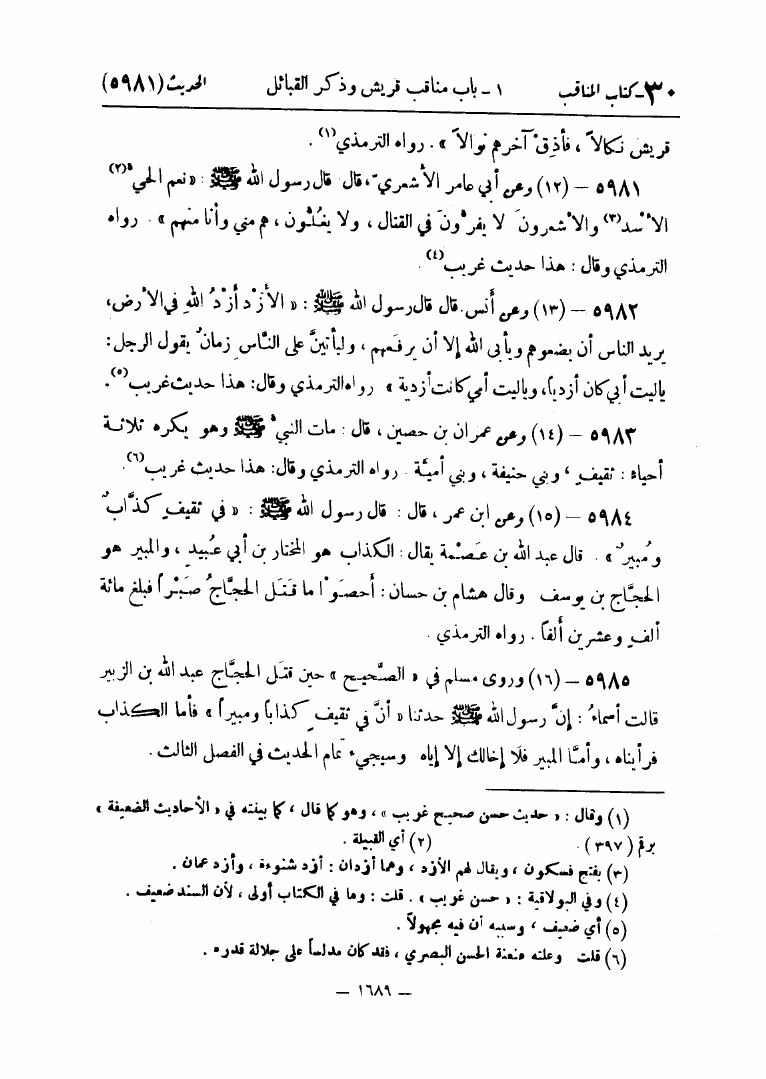 ٣٠-كتاب المناقب ١ - باب مناقب قريش وذكر القبائل الحديث (٥٩٨١)
قريش نكالاً ، فأذِقْ آخرهم نوالاً » . رواه الترمذي(١) .
٥٩٨١ – (١٢) وعن أبي عامر الأشعريّ ، قال قال رسول الله ﷺ : « نعم الحيُّ(٢)
الأسْد(٣) والأشعرون لا يفرُّونَ في القتال ، ولا يغُلُّون ، هم مني وأنا منهم » . رواه
الترمذي وقال : هذا حديث غريب(٤) .
٥٩٨٢ – (١٣) وعن أنس . قال قال رسول الله ﷺ : « الأزْد أزْدُ اللهِ في الأرض ،
يريد الناس أن يضعوهم ويأبى الله إلا أن يرفعهم ، وليأتينَّ على النَّاسِ زمانٌ يقول الرجل :
ياليت أبي كان أزدياً ، وياليت أمي كانت أزدية » رواه الترمذي وقال : هذا حديث غريب(٥) .
٥٩٨٣ – (١٤) وعن عمران بن حصين ، قال : مات النبيُّ ﷺ وهو يكره ثلاثة
أحياء : ثقيفٍ ، وبني حنيفة ، وبني أميَّة . رواه الترمذي وقال : هذا حديث غريب(٦) .
٥٩٨٤ – (١٥) وعن ابن عمر ، قال : قال رسول الله ﷺ : « في ثقيفٍ كذَّابٌ
ومُبيرٌ » . قال عبد الله بن عصْمة يقال : الكذاب هو المختار بن أبي عُبيد ، والمبير هو
الحجَّاج بن يوسف وقال هشام بن حسان : أحصَوْا ما قتَل الحجَّاجُ صَبْراً فبلغ مائة
ألف وعشرين ألفاً . رواه الترمذي .
٥٩٨٥ – (١٦) وروى مسلم في « الصَّحيح » حين قتَل الحجَّاج عبد الله بن الزبير
قالت أسماءُ : إنَّ رسول الله ﷺ حدثنا « أنَّ في ثقيفٍ كذاباً ومبيراً » فأما الكذاب
فرأيناه ، وأمَّا المبير فلا إخالك إلا إياه وسيجيء تمام الحديث في الفصل الثالث .
(١) وقال : « حديث حسن صحيح غريب » ، وهو كما قال ، كما بينته في « الأحاديث الضعيفة »
برقم (٣٩٧) . (٢) أي القبيلة .
(٣) بفتح فسكون ، ويقال لهم الأزد ، وهما أزدان : أزد شنوءة ، وأزد عمان .
(٤) وفي البولاقية : « حسن غريب » . قلت : وما في الكتاب أولى ، لأن السند ضعيف .
(٥) أي ضعيف ، وسببه أن فيه مجهولاً .
(٦) قلت وعلته عنعنة الحسن البصري ، فقد كان مدلساً على جلالة قدره .
– ١٦٨٩ –